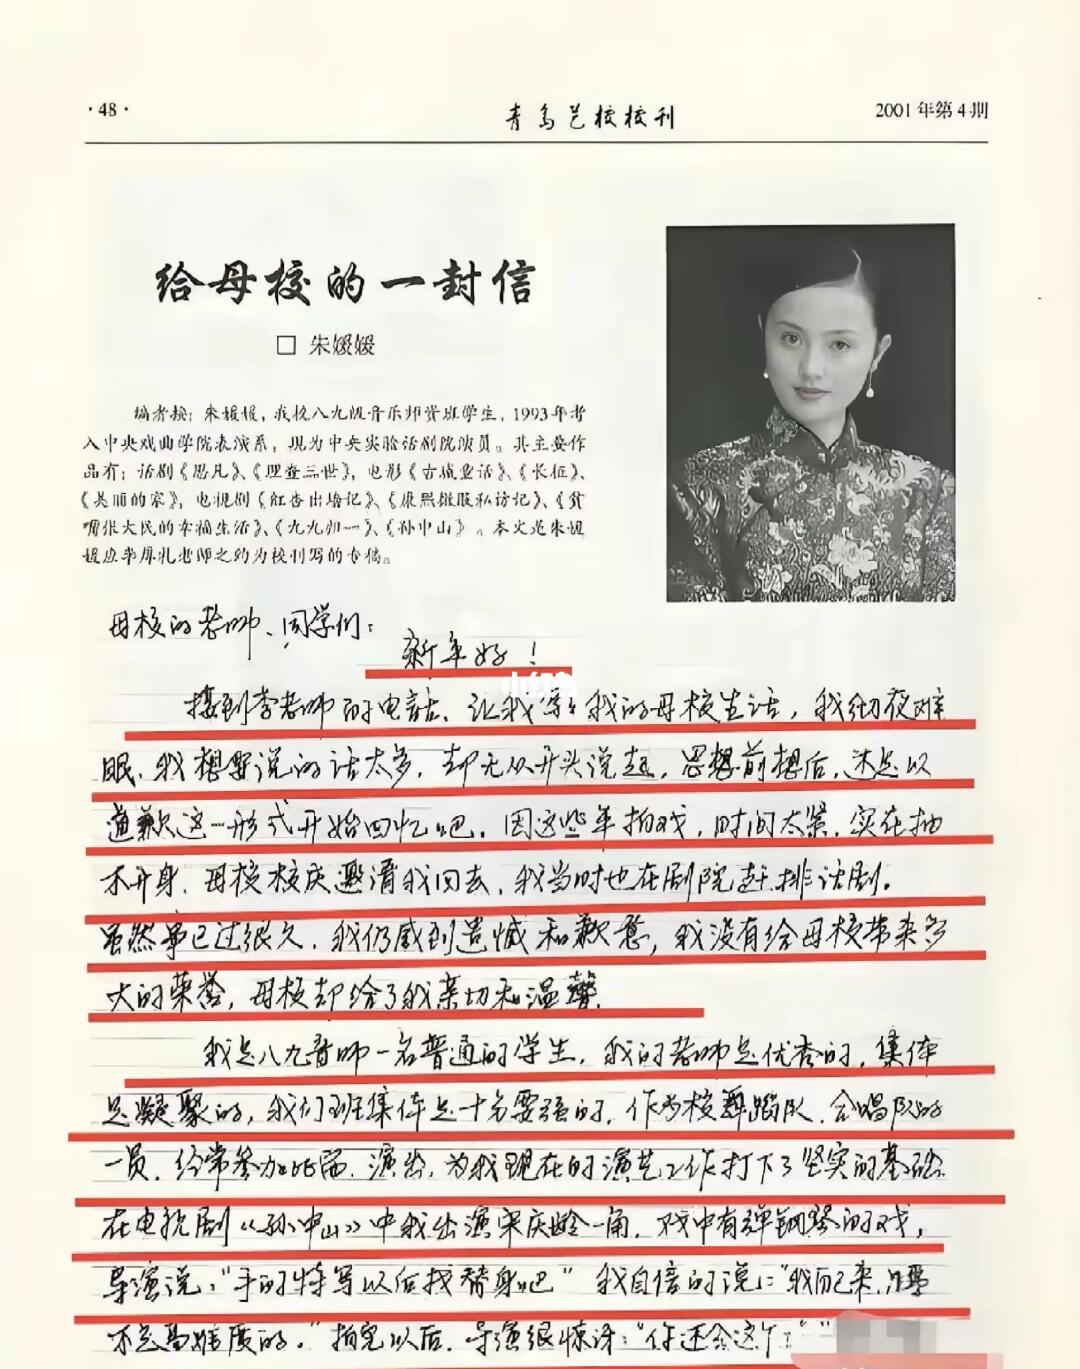 ·48·
青岛艺校校刊
2001年第4期
给母校的一封信
□ 朱媛媛
编者按：朱媛媛，我校八九级音乐师资班学生，1993年考
入中央戏曲学院表演系，现为中央实验话剧院演员。其主要作
品有：话剧《思凡》、《理查三世》，电影《古城童话》、《长征》、
《美丽的家》，电视剧《红杏出墙记》、《康熙微服私访记》、《贫
嘴张大民的幸福生活》、《九九归一》、《孙中山》。本文是朱媛
媛应李厚礼老师之约为校刊写的专稿。
母校的老师、同学们：
新年好！
接到李老师的电话，让我写写我的母校生活，我彻夜难
眠，我想要说的话太多，却无从开头说起，思想前想后，还是以
道歉这一形式开始回忆吧。因这些年拍戏，时间太紧，实在抽
不开身，母校校庆邀请我回去，我当时也在剧院赶排话剧。
虽然事已过很久，我仍感到遗憾和歉意，我没有给母校带来多
大的荣誉，母校却给了我亲切和温馨。
我是八九音师一名普通的学生，我的老师是优秀的，集体
是凝聚的，我们班集体是十分要强的，作为校舞蹈队、合唱队的
一员，经常参加比赛、演出，为我现在的演艺工作打下了坚实的基础。
在电视剧《孙中山》中我出演宋庆龄一角，戏中有弹钢琴的戏，
导演说：“手的特写以后找替身吧”我自信的说：“我自己来，
不是高难度的。”拍完以后，导演很惊讶：“你还会这个